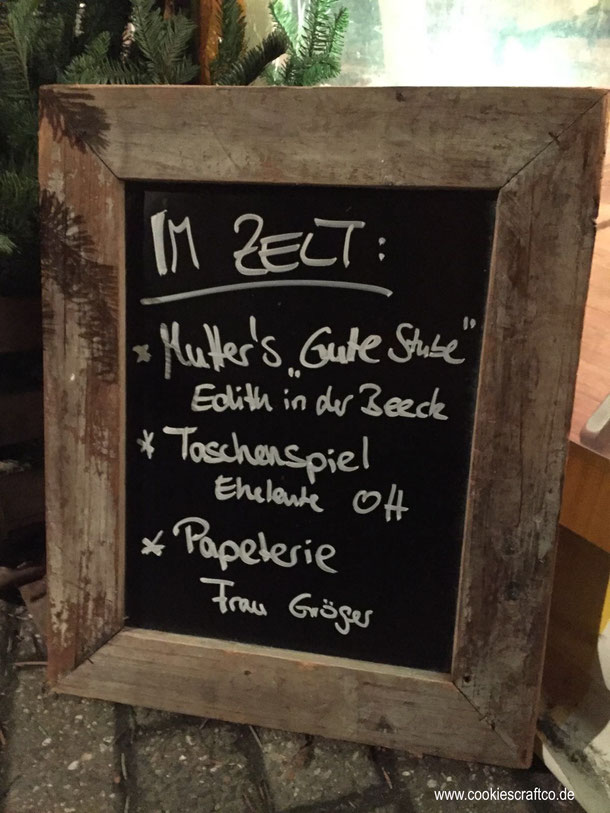 IM ZELT:
* Mutter's „Gute Stube"
Edith in der Beeck
* Taschenspiel
Eheleute Ott
* Papeterie
Frau Gröger
www.cookiescraftco.de